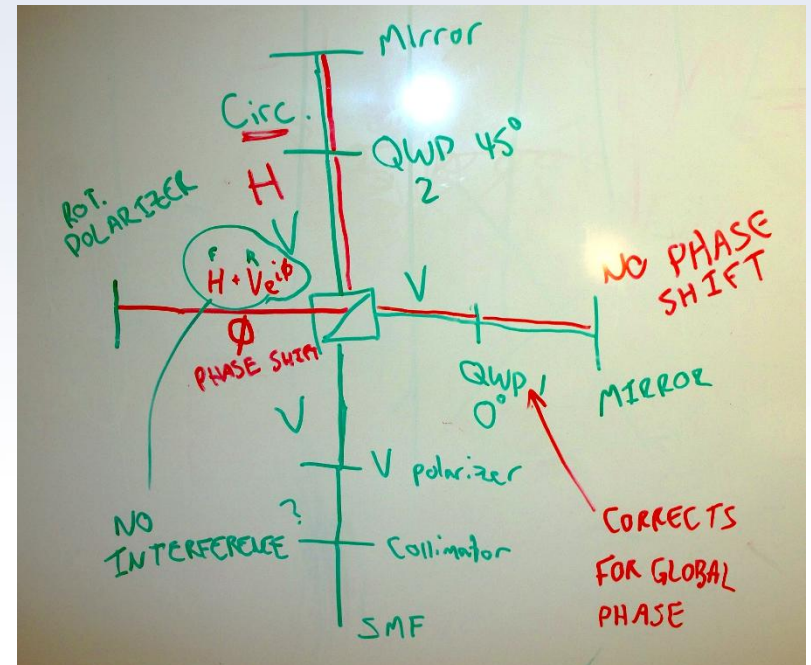 Mirror
Circ.
QWP 45°
2
H
V
ROT.
POLARIZER
F R
H + Ve^iφ
V
NO PHASE
SHIFT
φ
PHASE SHIFT
QWP 1
0°
MIRROR
V
V polarizer
NO
INTERFERENCE?
Collimator
CORRECTS
FOR GLOBAL
PHASE
SMF